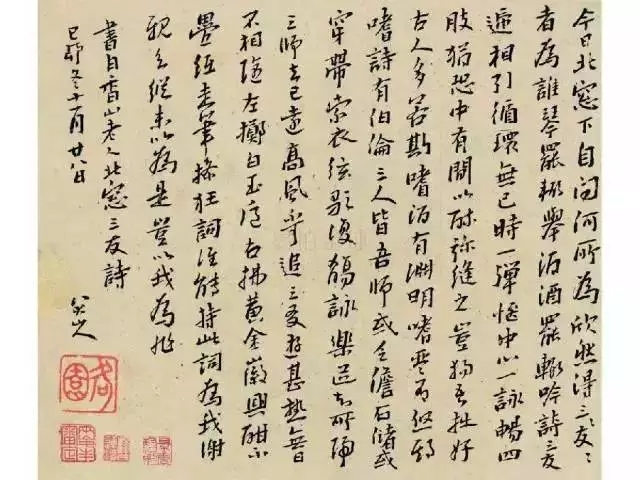 今日北窓下自問何所為欣然得三友三友
者為誰琴罷輒舉酒酒罷輒吟詩三友
遞相引循環無已時一彈愜中心一詠暢四
肢猶恐中有間以酔彌縫之豈獨吾拙好
古人多若斯嗜酒有淵明嗜琴有啟期
嗜詩有伯倫三人皆吾師或乏儋石儲或
穿帶索衣絃歌復觴詠樂道知所歸
三師去已遠高風不可追三友遊甚熟無日
不相隨左擲白玉卮右拂黃金徽興酣不
疊紙走筆操狂詞誰能持此詞為我謝
親知縱未以為是豈以我為非
書白香山老人北窓三友詩
己卯冬十一月廿八日
八大山人